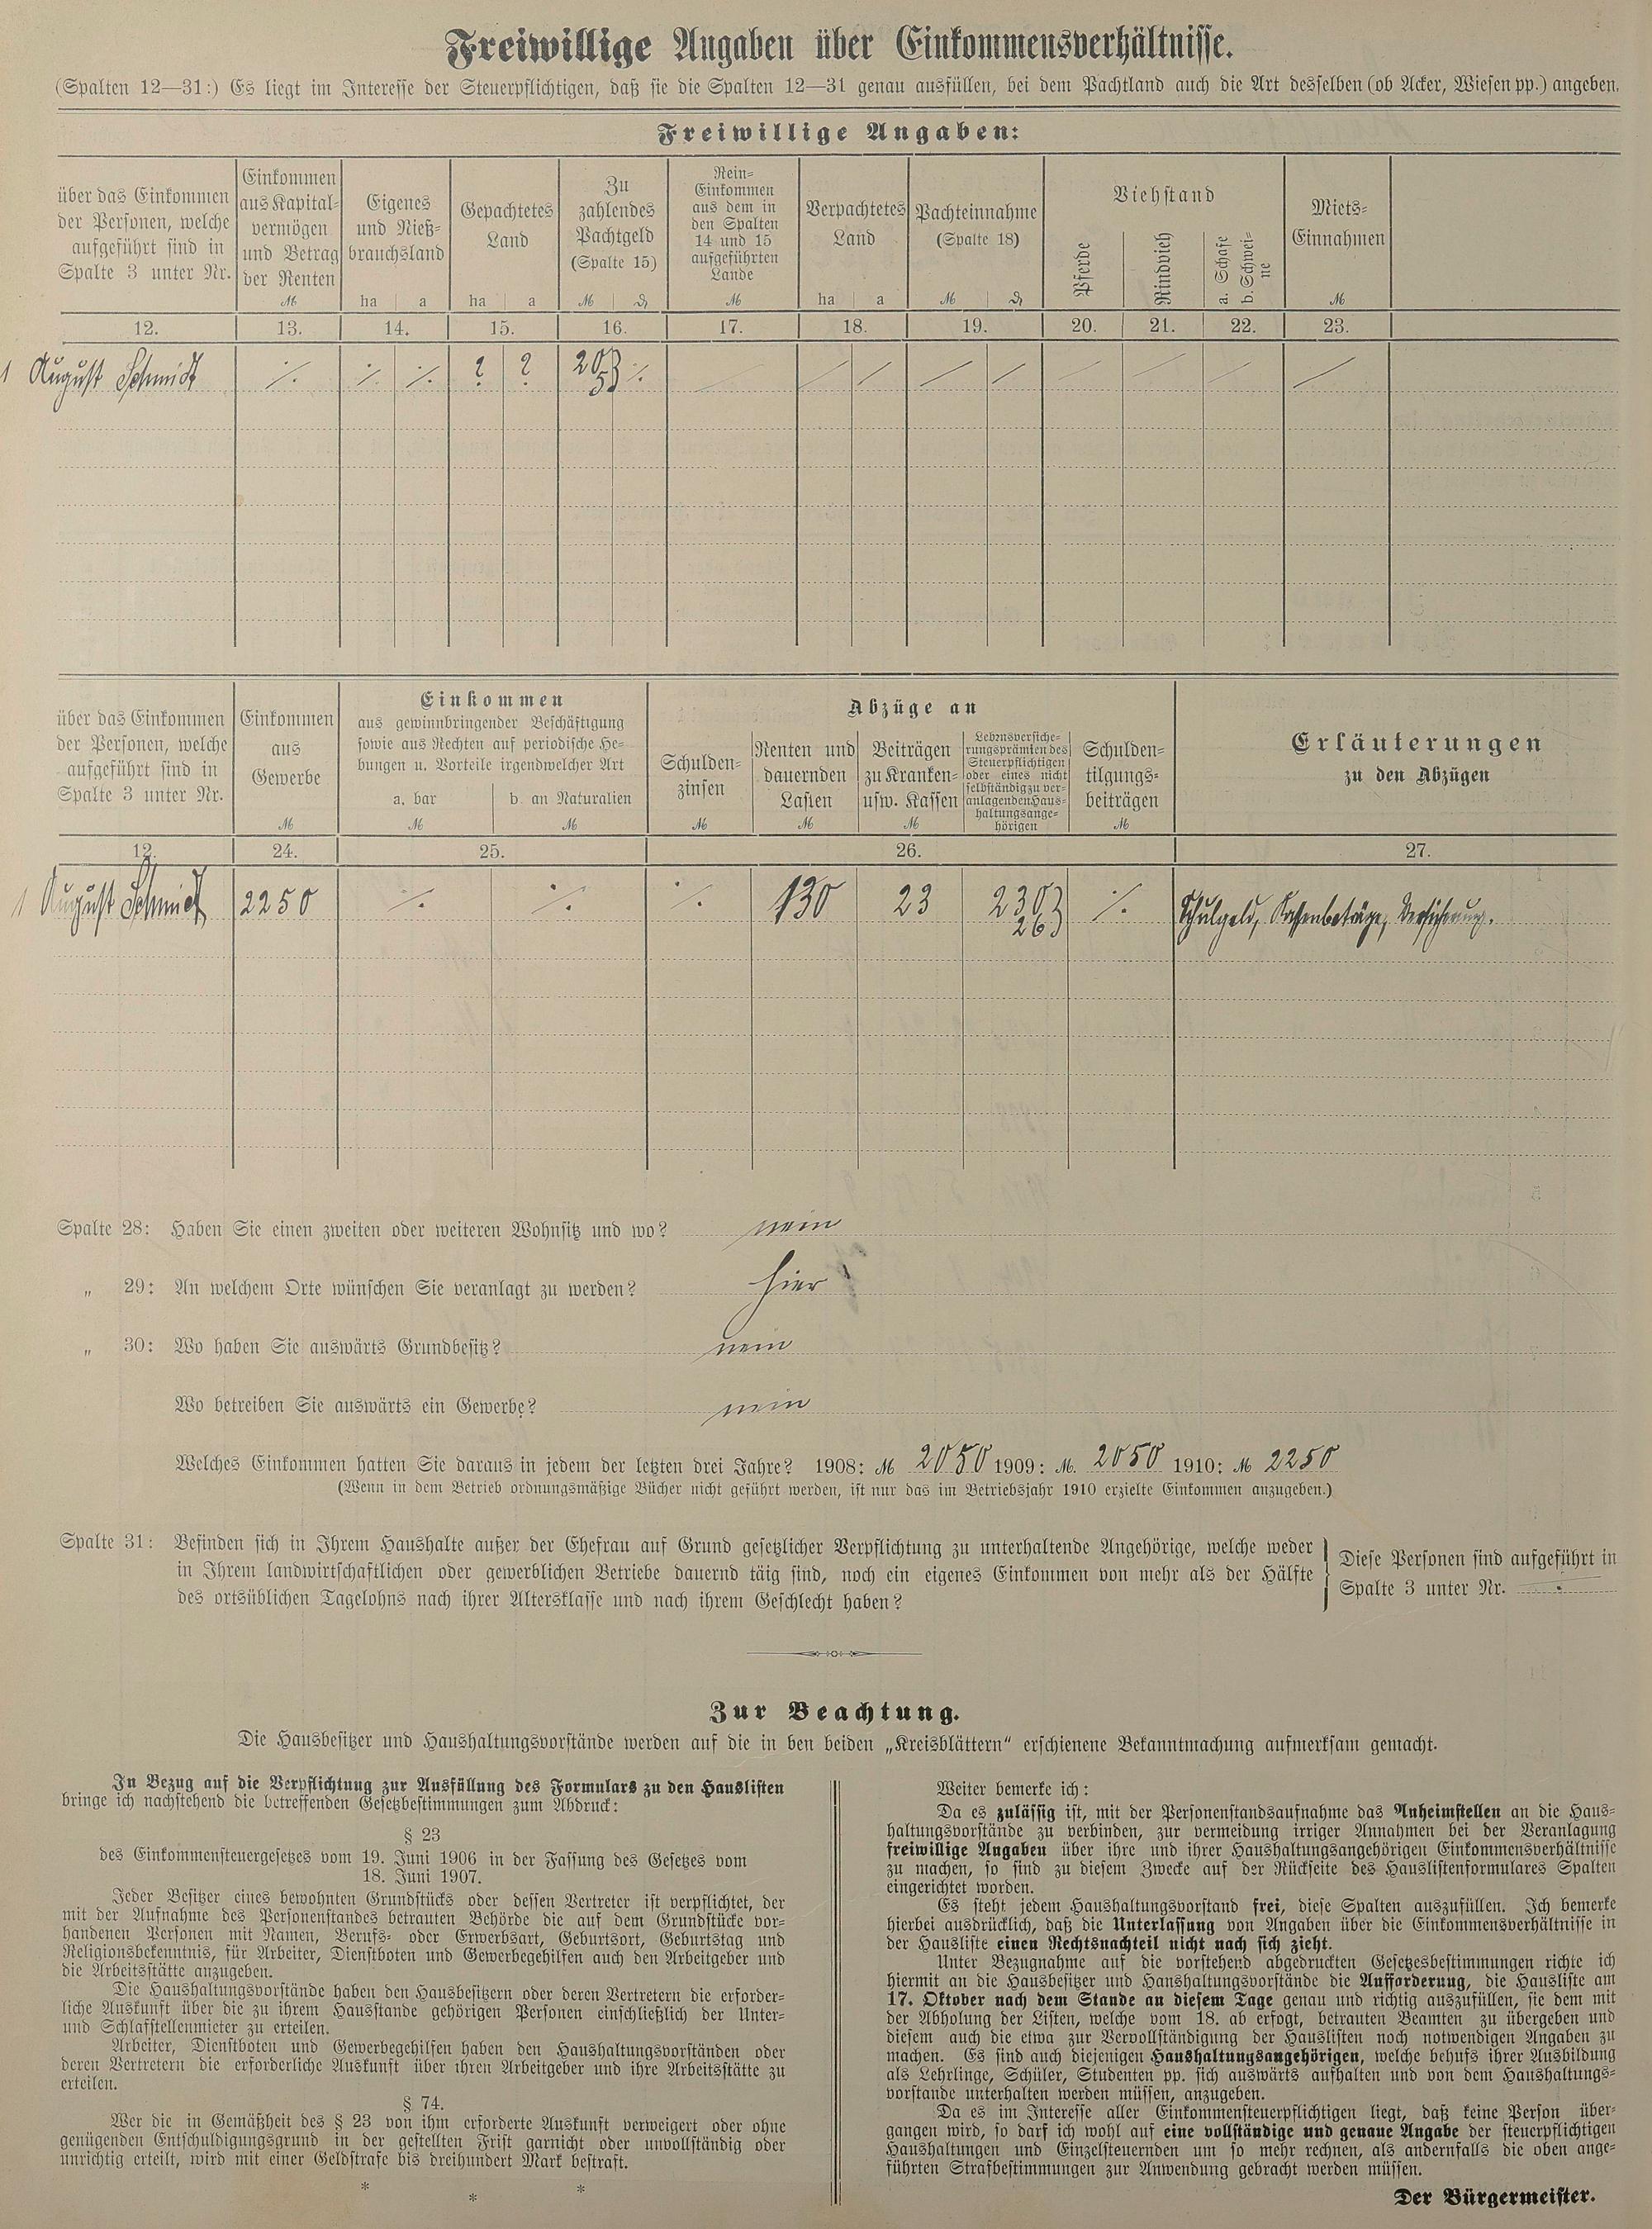 Freiwillige Angaben über Einkommensverhältnisse.
(Spalten 12—31:) Es liegt im Interesse der Steuerpflichtigen, daß sie die Spalten 12—31 genau ausfüllen, bei dem Pachtland auch die Art desselben (ob Acker, Wiesen pp.) angeben.
Freiwillige Angaben:
über das Einkommen
der Personen, welche
aufgeführt sind in
Spalte 3 unter Nr.
Einkommen
aus Kapital-
vermögen
und Betrag
der Renten
M
Eigenes
und Nieß-
brauchsland
ha a
Gepachtetes
Land
ha a
Zu
zahlendes
Pachtgeld
(Spalte 15)
M ₰
Rein-
Einkommen
aus dem in
den Spalten
14 und 15
aufgeführten
Lande
M
Verpachtetes
Land
ha a
Pachteinnahme
(Spalte 18)
M ₰
Viehstand
Pferde
Rindvieh
a. Schafe
b. Schwei-
ne
Miets-
Einnahmen
M
12. 13. 14. 15. 16. 17. 18. 19. 20. 21. 22. 23.
1 August Schmidt ./. ./. ./. ? ? 20 } ./. / / / / / / / / /
53
über das Einkommen
der Personen, welche
aufgeführt sind in
Spalte 3 unter Nr.
Einkommen
aus
Gewerbe
M
Einkommen
aus gewinnbringender Beschäftigung
sowie aus Rechten auf periodische He-
bungen u. Vorteile irgendwelcher Art
a. bar
M
b. an Naturalien
M
Abzüge an
Schulden-
zinsen
M
Renten und
dauernden
Lasten
M
Beiträgen
zu Kranken-
usw. Kassen
M
Lebensversiche-
rungsprämien des
Steuerpflichtigen
oder eines nicht
selbständig zu ver-
anlagenden Haus-
haltungsange-
hörigen
Schulden-
tilgungs-
beiträgen
M
Erläuterungen
zu den Abzügen
12. 24. 25. 26. 27.
1 August Schmidt 2250 ./. ./. ./. 130 23 230 } ./. Schulgeld, Kassenbeträge, Versicherung.
26
Spalte 28: Haben Sie einen zweiten oder weiteren Wohnsitz und wo? nein
„ 29: An welchem Orte wünschen Sie veranlagt zu werden? hier
„ 30: Wo haben Sie auswärts Grundbesitz? nein
Wo betreiben Sie auswärts ein Gewerbe? nein
Welches Einkommen hatten Sie daraus in jedem der letzten drei Jahre? 1908: M 2050 1909: M. 2050 1910: M 2250
(Wenn in dem Betrieb ordnungsmäßige Bücher nicht geführt werden, ist nur das im Betriebsjahr 1910 erzielte Einkommen anzugeben.)
Spalte 31: Befinden sich in Ihrem Haushalte außer der Ehefrau auf Grund gesetzlicher Verpflichtung zu unterhaltende Angehörige, welche weder
in Ihrem landwirtschaftlichen oder gewerblichen Betriebe dauernd täig sind, noch ein eigenes Einkommen von mehr als der Hälfte
des ortsüblichen Tagelohns nach ihrer Altersklasse und nach ihrem Geschlecht haben?
Diese Personen sind aufgeführt in
Spalte 3 unter Nr. ./.
Zur Beachtung.
Die Hausbesitzer und Haushaltungsvorstände werden auf die in ben beiden „Kreisblättern“ erschienene Bekanntmachung aufmerksam gemacht.
In Bezug auf die Verpflichtung zur Ausfüllung des Formulars zu den Hauslisten
bringe ich nachstehend die betreffenden Gesetzbestimmungen zum Abdruck:
§ 23
des Einkommensteuergesetzes vom 19. Juni 1906 in der Fassung des Gesetzes vom
18. Juni 1907.
Jeder Besitzer eines bewohnten Grundstücks oder dessen Vertreter ist verpflichtet, der
mit der Aufnahme des Personenstandes betrauten Behörde die auf dem Grundstücke vor-
handenen Personen mit Namen, Berufs- oder Erwerbsart, Geburtsort, Geburtstag und
Religionsbekenntnis, für Arbeiter, Dienstboten und Gewerbegehilfen auch den Arbeitgeber und
die Arbeitsstätte anzugeben.
Die Haushaltungsvorstände haben den Hausbesitzern oder deren Vertretern die erforder-
liche Auskunft über die zu ihrem Hausstande gehörigen Personen einschließlich der Unter-
und Schlafstellenmieter zu erteilen.
Arbeiter, Dienstboten und Gewerbegehilfen haben den Haushaltungsvorständen oder
deren Vertretern die erforderliche Auskunft über ihren Arbeitgeber und ihre Arbeitsstätte zu
erteilen.
§ 74.
Wer die in Gemäßheit des § 23 von ihm erforderte Auskunft verweigert oder ohne
genügenden Entschuldigungsgrund in der gestellten Frist garnicht oder unvollständig oder
unrichtig erteilt, wird mit einer Geldstrafe bis dreihundert Mark bestraft.
* * *
Weiter bemerke ich:
Da es zulässig ist, mit der Personenstandsaufnahme das Anheimstellen an die Haus-
haltungsvorstände zu verbinden, zur vermeidung irriger Annahmen bei der Veranlagung
freiwillige Angaben über ihre und ihrer Haushaltungsangehörigen Einkommensverhältnisse
zu machen, so sind zu diesem Zwecke auf der Rückseite des Hauslistenformulares Spalten
eingerichtet worden.
Es steht jedem Haushaltungsvorstand frei, diese Spalten auszufüllen. Ich bemerke
hierbei ausdrücklich, daß die Unterlassung von Angaben über die Einkommensverhältnisse in
der Hausliste einen Rechtsnachteil nicht nach sich zieht.
Unter Bezugnahme auf die vorstehend abgedruckten Gesetzesbestimmungen richte ich
hiermit an die Hausbesitzer und Haushaltungsvorstände die Aufforderung, die Hausliste am
17. Oktober nach dem Stande an diesem Tage genau und richtig auszufüllen, sie dem mit
der Abholung der Listen, welche vom 18. ab erfogt, betrauten Beamten zu übergeben und
diesem auch die etwa zur Vervollständigung der Hauslisten noch notwendigen Angaben zu
machen. Es sind auch diejenigen Haushaltungsangehörigen, welche behufs ihrer Ausbildung
als Lehrlinge, Schüler, Studenten pp. sich auswärts aufhalten und von dem Haushaltungs-
vorstande unterhalten werden müssen, anzugeben.
Da es im Interesse aller Einkommensteuerpflichtigen liegt, daß keine Person über-
gangen wird, so darf ich wohl auf eine vollständige und genaue Angabe der steuerpflichtigen
Haushaltungen und Einzelsteuernden um so mehr rechnen, als andernfalls die oben ange-
führten Strafbestimmungen zur Anwendung gebracht werden müssen.
Der Bürgermeister.